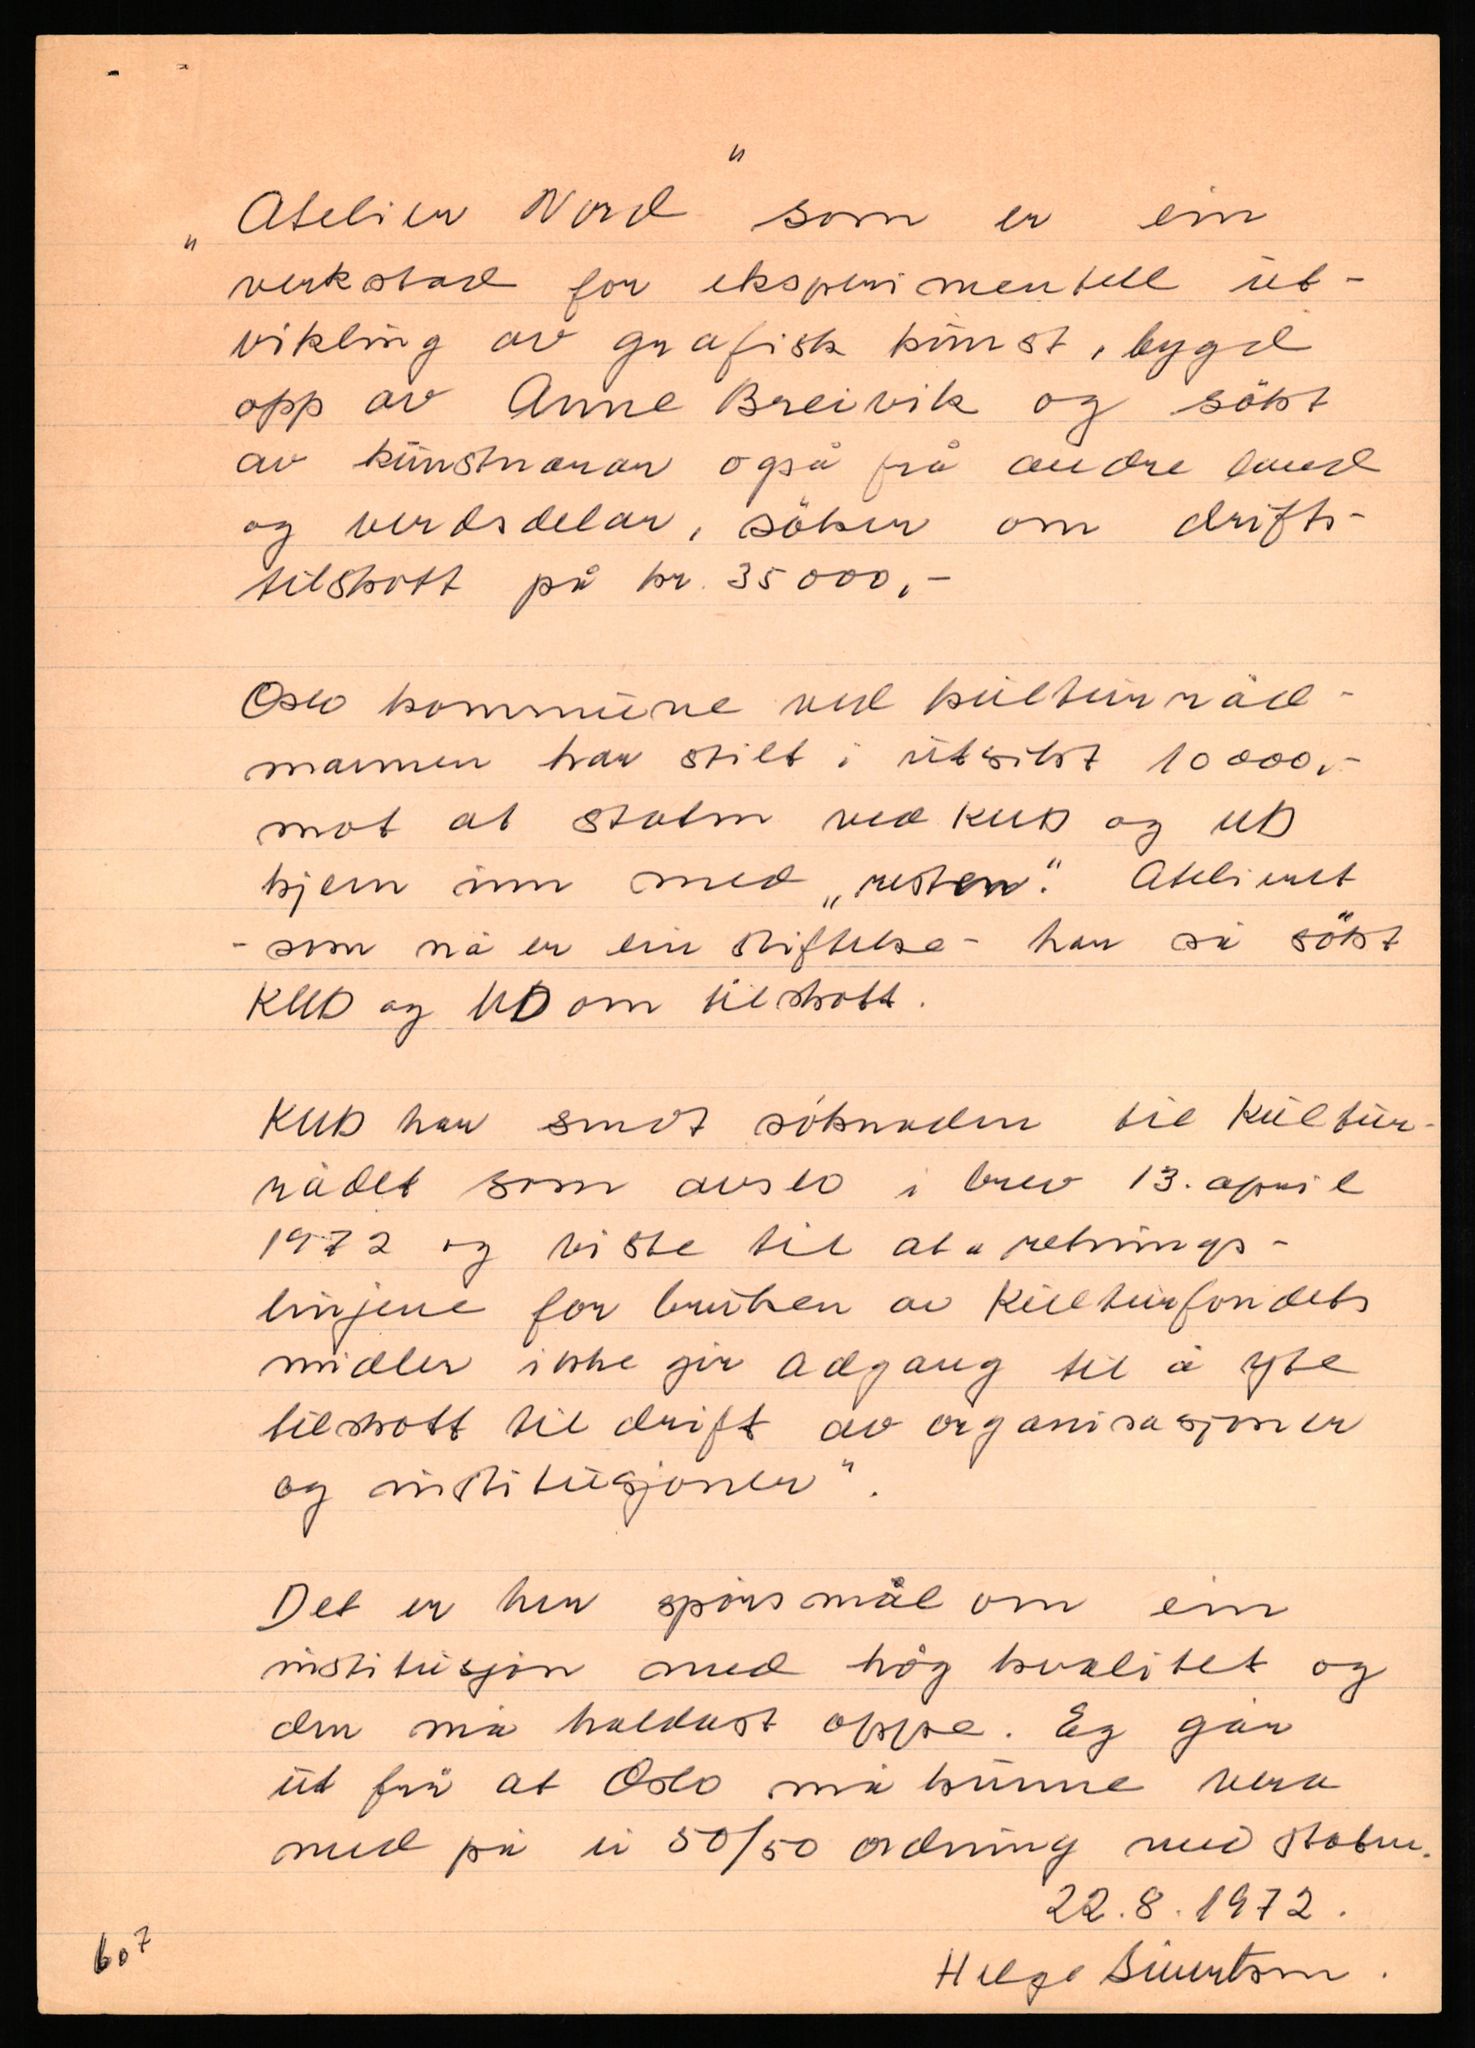 "Atelier Nord" som er ein
verkstad for eksperimentell ut-
vikling av grafisk kunst, bygd
opp av Anne Breivik og sökt
av kunstnarar også frå andre land
og verdsdelar, söker om drifts-
tilskott på kr. 35000,-
Oslo kommune ved kulturråd-
mannen har stilt i utsikt 10000,-
mot at staten ved KUD og UD
kjem inn med „resten". Atelieret
- som nå er ein stiftelse - har så sökt
KUD og UD om tilskott.
KUD har sendt söknaden til Kultur-
rådet som avslo i brev 13. april
1972 og viste til at „retnings-
linjene for bruken av Kulturfondets
midler ikke gir adgang til å yte
tilskott til drift av organisasjoner
og institusjoner".
Det er her spörsmål om ein
institusjon med høg kvalitet og
den må haldast oppe. Eg går
ut frå at Oslo må kunne vera
med på ei 50/50 ordning med staten.
22.8.1972.
Helge Sivertsen.
607